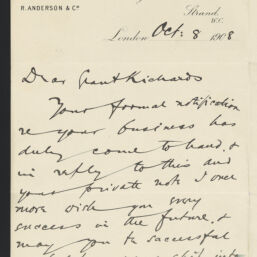 R. ANDERSON & Cº
Strand,
W.C.
London Oct: 8 1908
Dear Grant Richards
Your formal notification
re your business has
duly come to hand, &
in reply to this and
your private note I once
more wish you every
success in the future, &
may you be successful